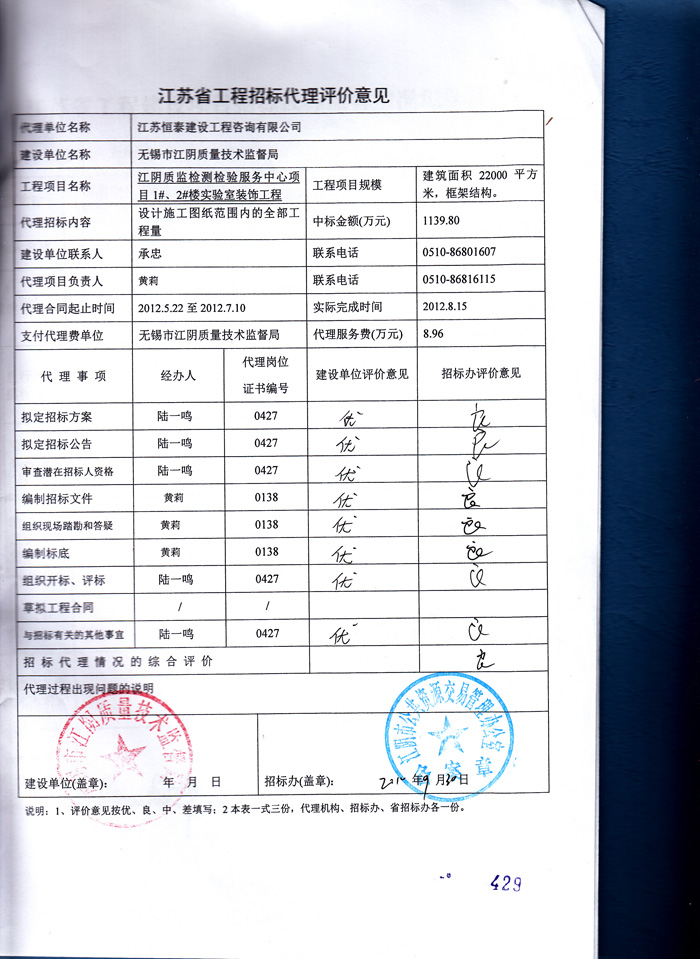 江苏省工程招标代理评价意见
代理单位名称 江苏恒泰建设工程咨询有限公司
建设单位名称 无锡市江阴质量技术监督局
工程项目名称 江阴质监检测检验服务中心项 工程项目规模 建筑面积 22000 平方
目 1#、2#楼实验室装饰工程 米，框架结构。
代理招标内容 设计施工图纸范围内的全部工 中标金额(万元) 1139.80
程量
建设单位联系人 承忠 联系电话 0510-86801607
代理项目负责人 黄莉 联系电话 0510-86816115
代理合同起止时间 2012.5.22 至 2012.7.10 实际完成时间 2012.8.15
支付代理费单位 无锡市江阴质量技术监督局 代理服务费(万元) 8.96
代 理 事 项 经办人 代理岗位 建设单位评价意见 招标办评价意见
证书编号
拟定招标方案 陆一鸣 0427 优
拟定招标公告 陆一鸣 0427 优
审查潜在招标人资格 陆一鸣 0427 优
编制招标文件 黄莉 0138 优 良
组织现场踏勘和答疑 黄莉 0138 优
编制标底 黄莉 0138 优
组织开标、评标 陆一鸣 0427 优
草拟工程合同 / /
与招标有关的其他事宜 陆一鸣 0427 优
招 标 代 理 情 况 的 综 合 评 价 良
代理过程出现问题的说明
市江阴质量技术监督
江阴市公共资源交易管理办公室
备案章
建设单位(盖章)： 年 月 日 招标办(盖章)： 年 9 月 30 日
说明：1、评价意见按优、良、中、差填写；2 本表一式三份，代理机构、招标办、省招标办各一份。
429